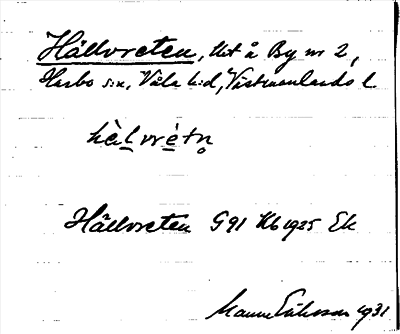 Hällvreten, lht å By nr 2,
Harbo sn, Våla hd, Västmanlands l
hèlvrètn̥
Hällvreten G91 Hb 1925 Ek
Manne Eriksson 1931